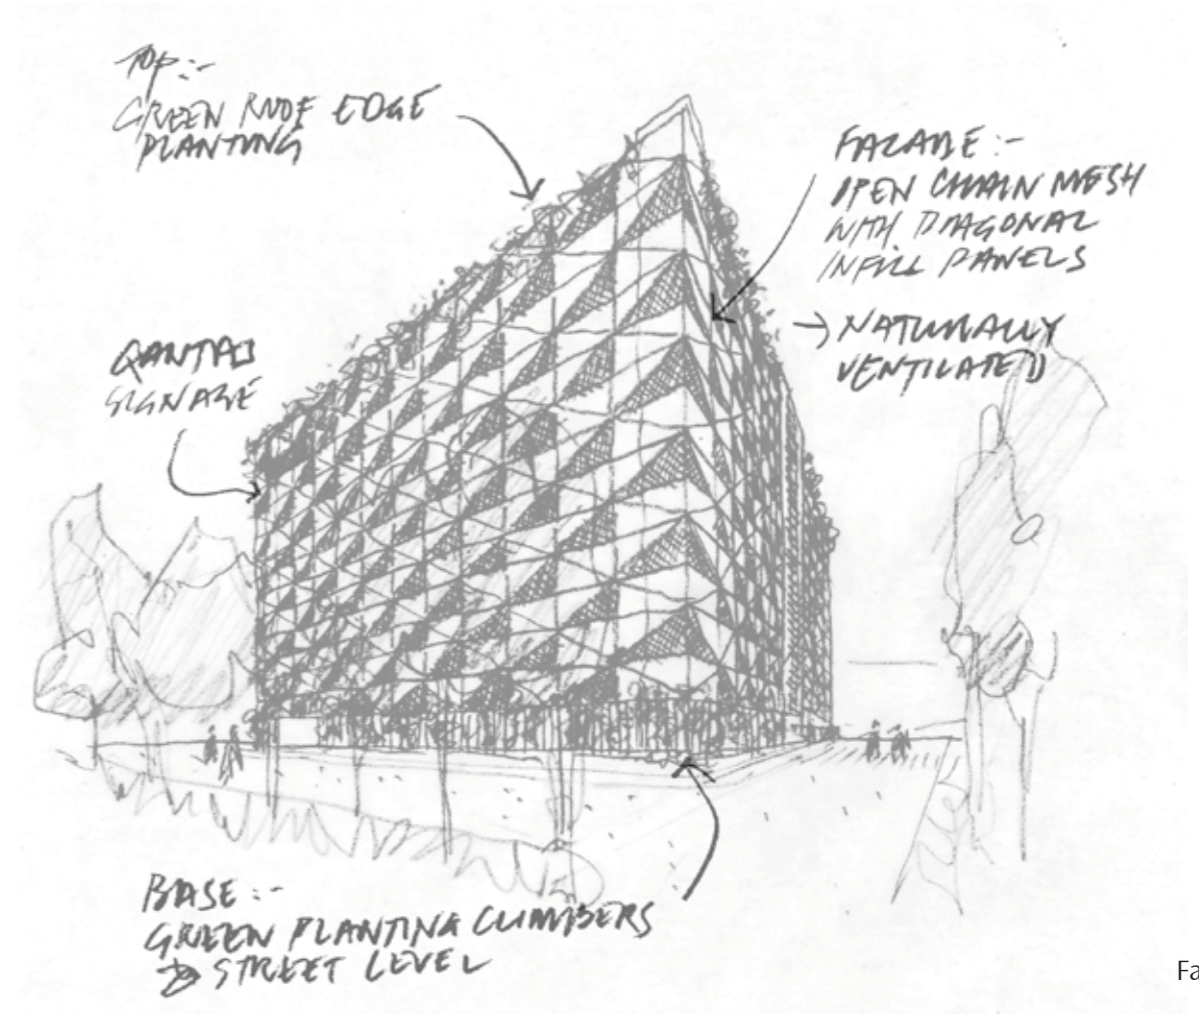 TOP:-
GREEN ROOF EDGE
PLANTING
FACADE:-
OPEN CHAIN MESH
WITH DIAGONAL
INFILL PANELS
→ NATURALLY
VENTILATED
QANTAS
SIGNAGE
BASE:-
GREEN PLANTING CLIMBERS
STREET LEVEL
Fa